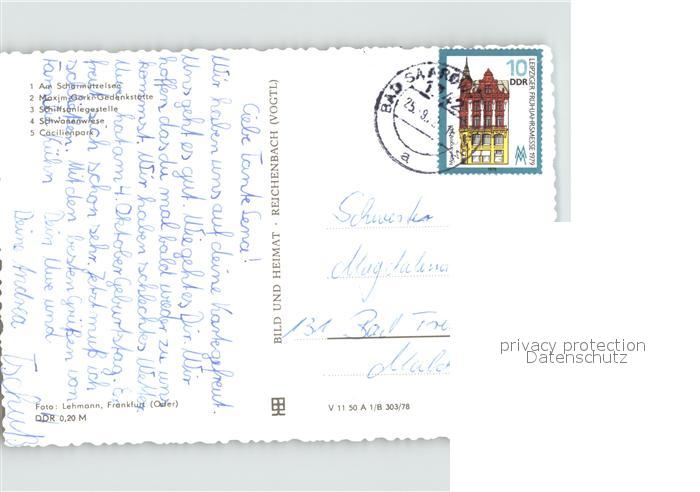 1 Am Scharmützelsee
2 Maxim-Gorki-Gedenkstätte
3 Schiffsanlegestelle
4 Schwanenwiese
5 Cäcilienpark
Liebe Tante Lena!
Wir haben uns auf deine Karte gefreut.
Uns geht es gut. Wie geht es Dir. Wir
hoffen das du mal bald wieder zu uns
kommst. Wir haben schlechtes Wetter.
Uwe hat am 4. Oktober Geburtstag. Er
freut sich schon sehr. Jetzt muß ich
schließen. Mit den besten Grüßen von
Dein Uwe und
Deine Andrea Tschüß
Foto: Lehmann, Frankfurt (Oder)
DDR 0,20 M
BILD UND HEIMAT · REICHENBACH (VOGTL)
V 11 50 A 1/B 303/78
BAD SAAROW
a
10
DDR
LEIPZIGER FRÜHJAHRSMESSE 1979
Schwester
Magdalena
131 Bad
privacy protection
Datenschutz